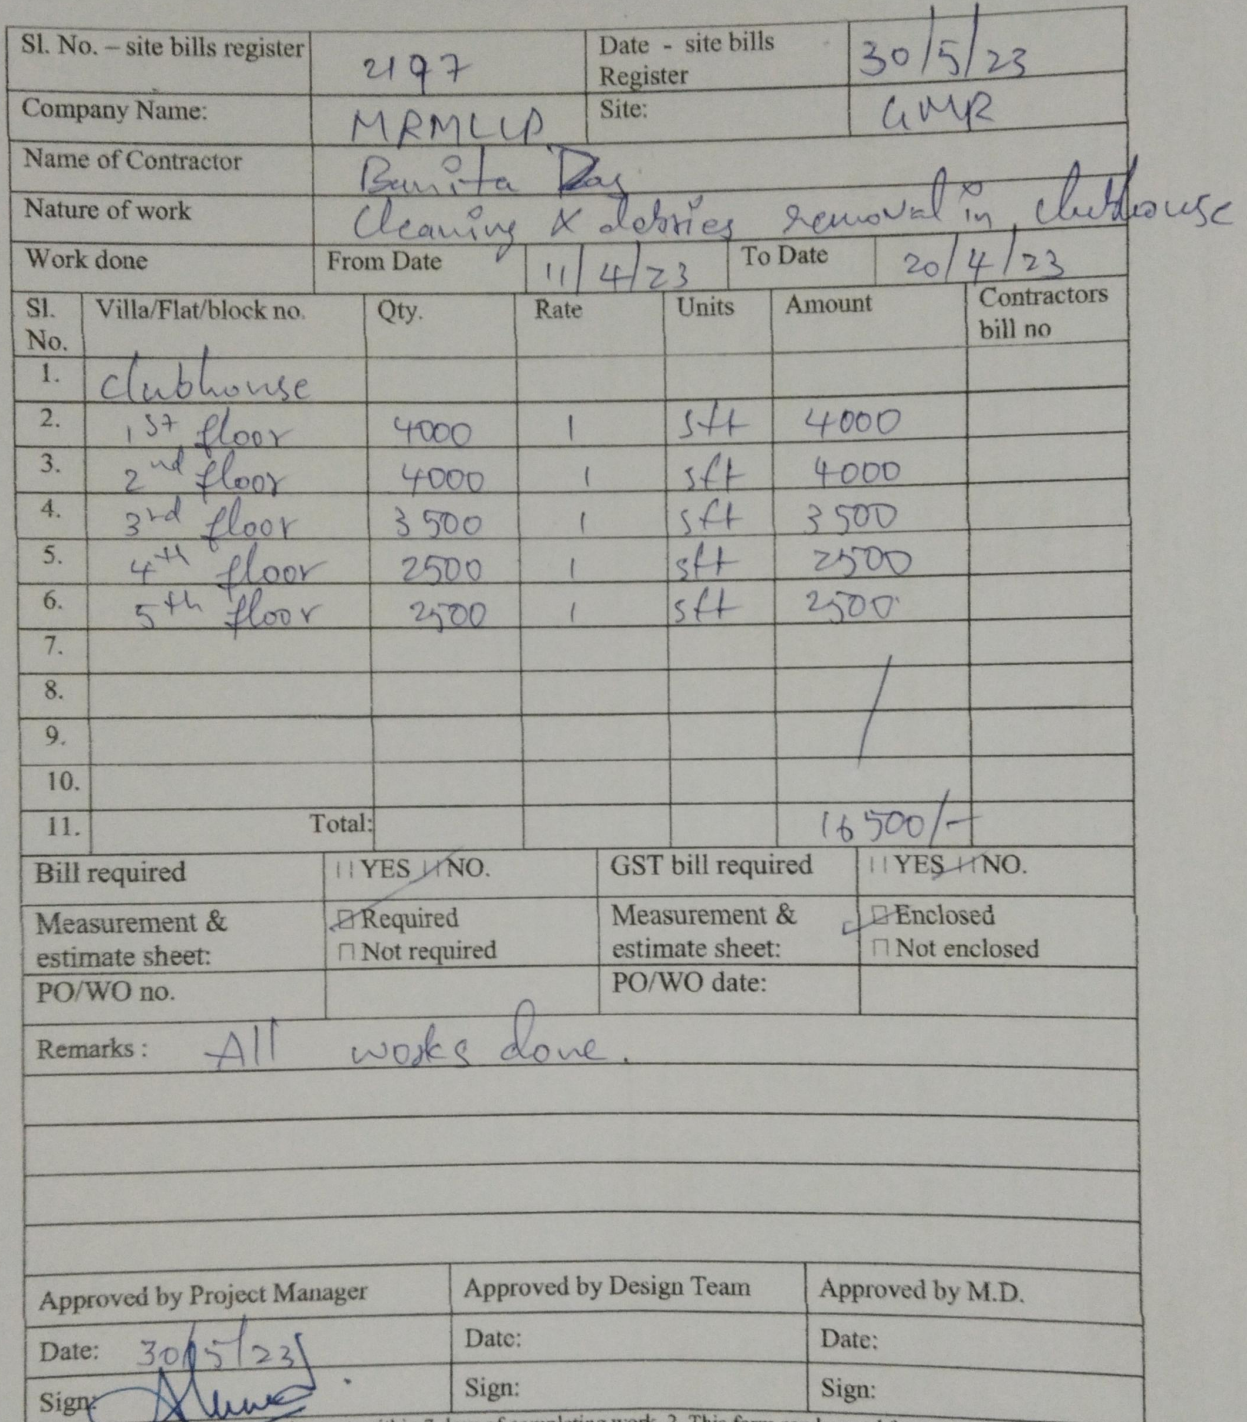 Sl. No. – site bills register 2197 Date - site bills Register 30/5/23
Company Name: MRMLLP Site: GMR
Name of Contractor Banita Das
Nature of work Cleaning & debries removal in clubhouse
Work done From Date 11/4/23 To Date 20/4/23
Sl. No. Villa/Flat/block no. Qty. Rate Units Amount Contractors bill no
1. clubhouse
2. 1st floor 4000 1 sft 4000
3. 2nd floor 4000 1 sft 4000
4. 3rd floor 3500 1 sft 3500
5. 4th floor 2500 1 sft 2500
6. 5th floor 2500 1 sft 2500
7.
8.
9.
10.
11. Total: 16500/-
Bill required YES NO. GST bill required YES NO.
Measurement & estimate sheet: Required Measurement & estimate sheet: Enclosed
Not required Not enclosed
PO/WO no. PO/WO date:
Remarks : All works done.
Approved by Project Manager Approved by Design Team Approved by M.D.
Date: 30/5/23 Date: Date:
Sign: Sign: Sign: